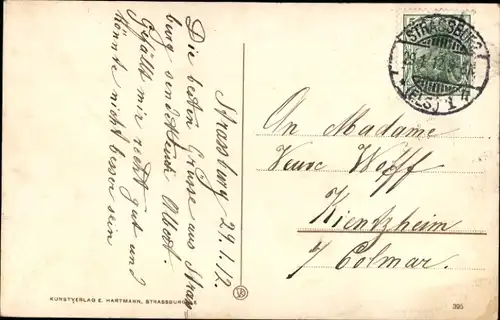 Strassburg 29.1.12.
Die besten Grüsse aus Strass-
burg sendet Euch Albert.
Gefällt mir recht gut und
könnte nicht besser sein
5
STRASSBURG
29.1.12.
(ELS.) 1
An Madame
Veuve Wolff
Kientzheim
b/ Colmar.
KUNSTVERLAG E. HARTMANN, STRASSBURG i/E
395